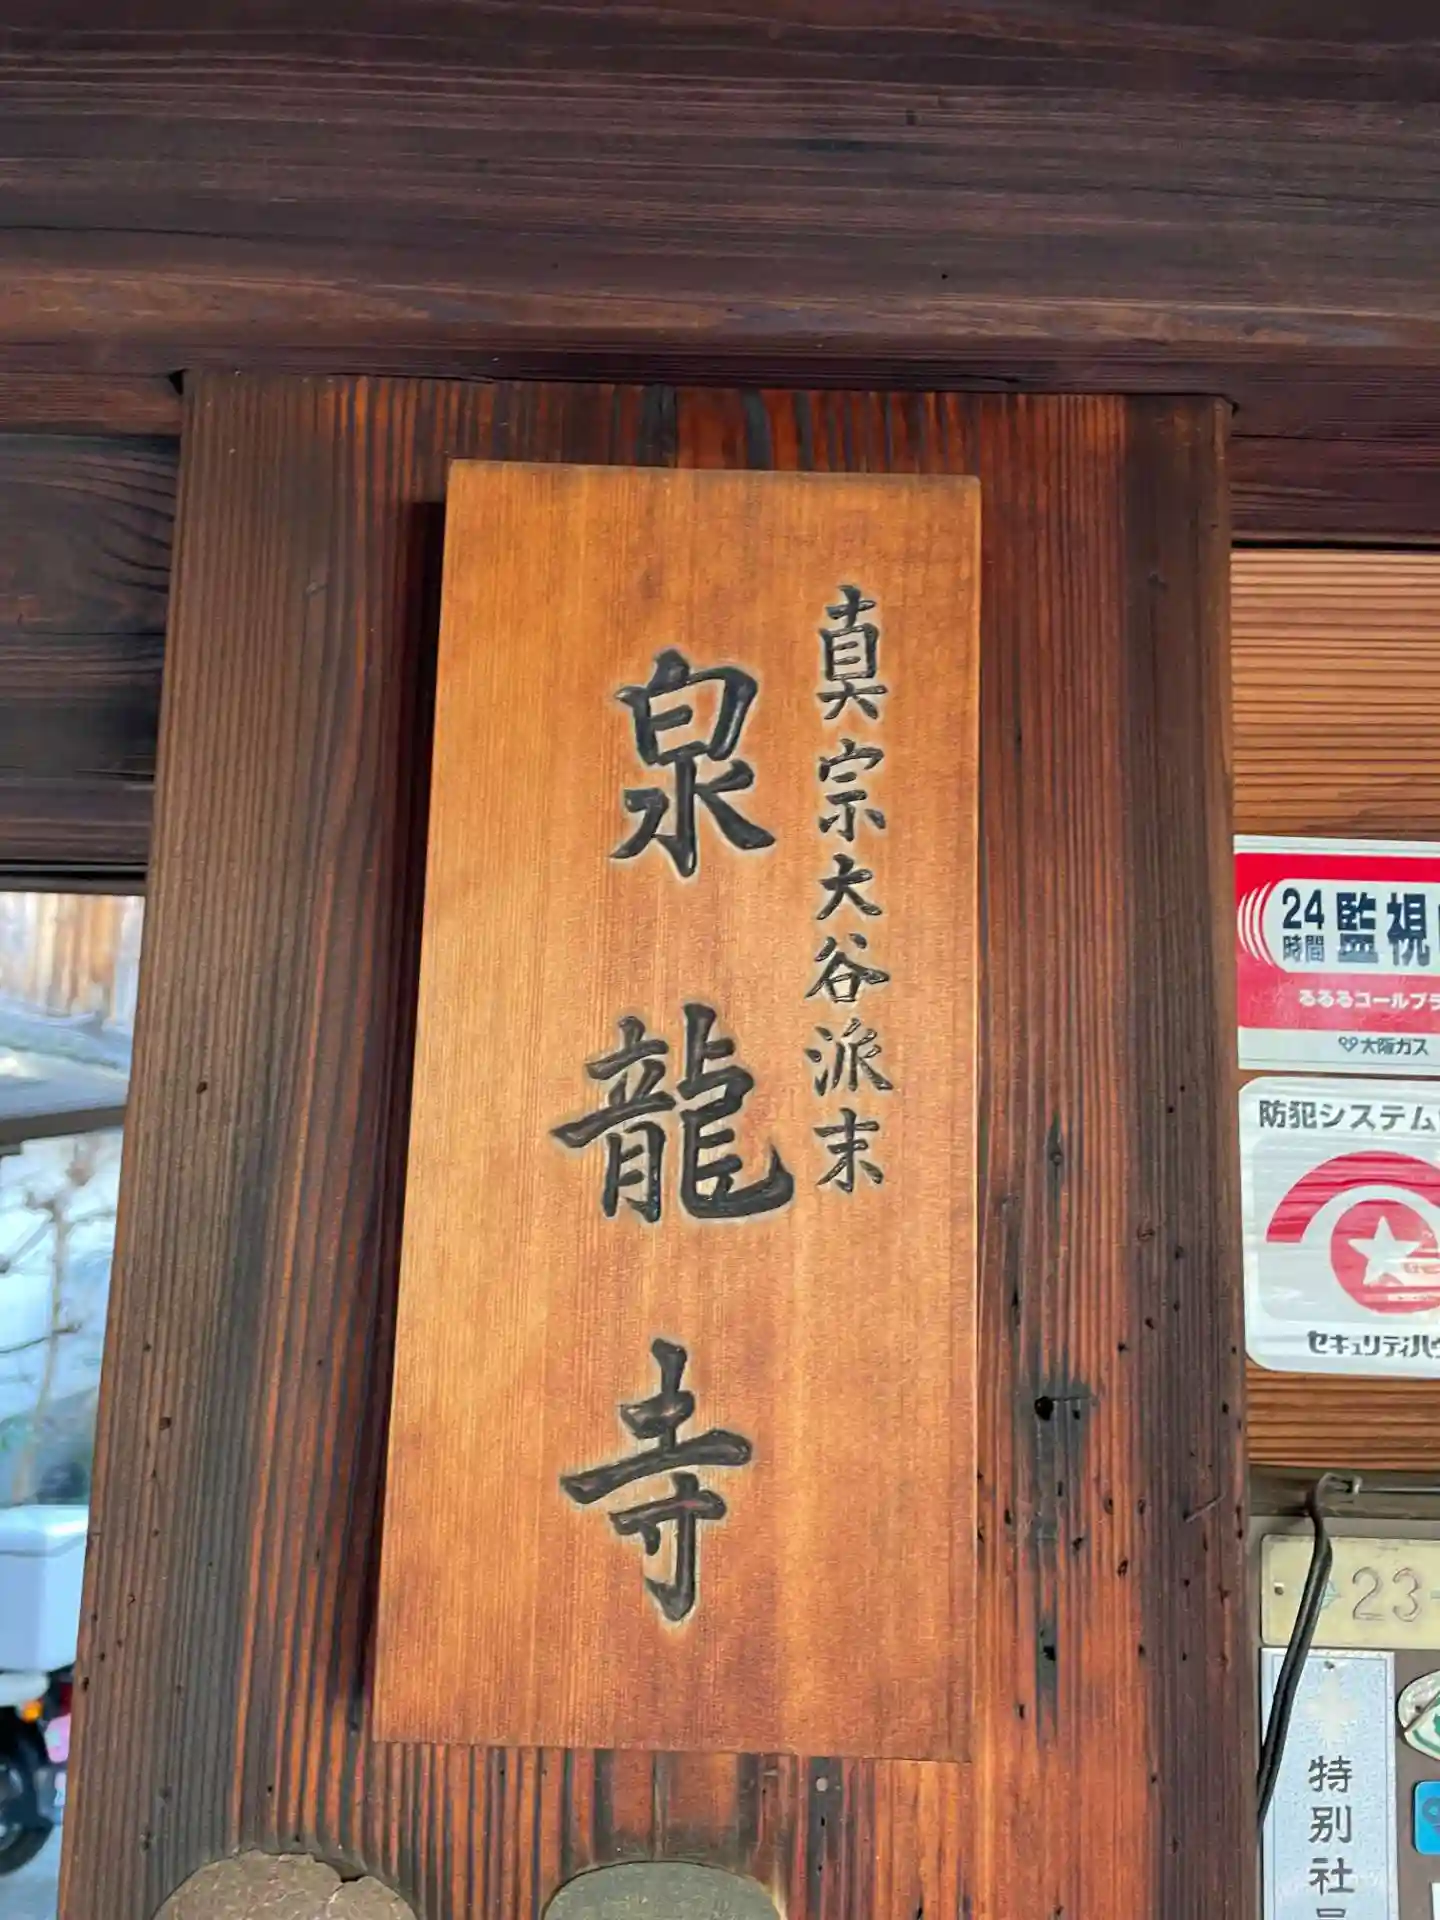 真宗大谷派末
泉龍寺
24時間 監視
るるるコールプラ
大阪ガス
防犯システム
セキュリティハウ
23
特別社員